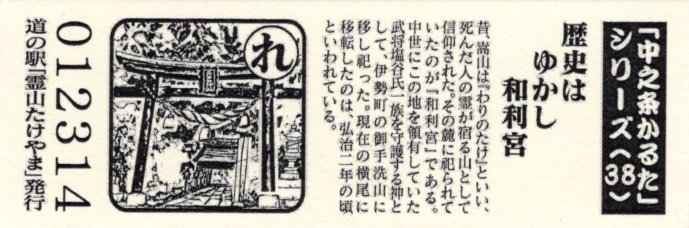 「中之条かるた」
シリーズ〈38〉
歴史は
ゆかし
和利宮
昔、嵩山は『わりのたけ』といい、
死んだ人の霊が宿る山として
信仰された。その麓に祀られて
いたのが『和利宮』である。
中世にこの地を領有していた
武将塩谷氏一族を守護する神と
して、伊勢町の御手洗山に
移し祀った。現在の横尾に
移転したのは、弘治二年の頃
といわれている。
れ
012314
道の駅「霊山たけやま」発行